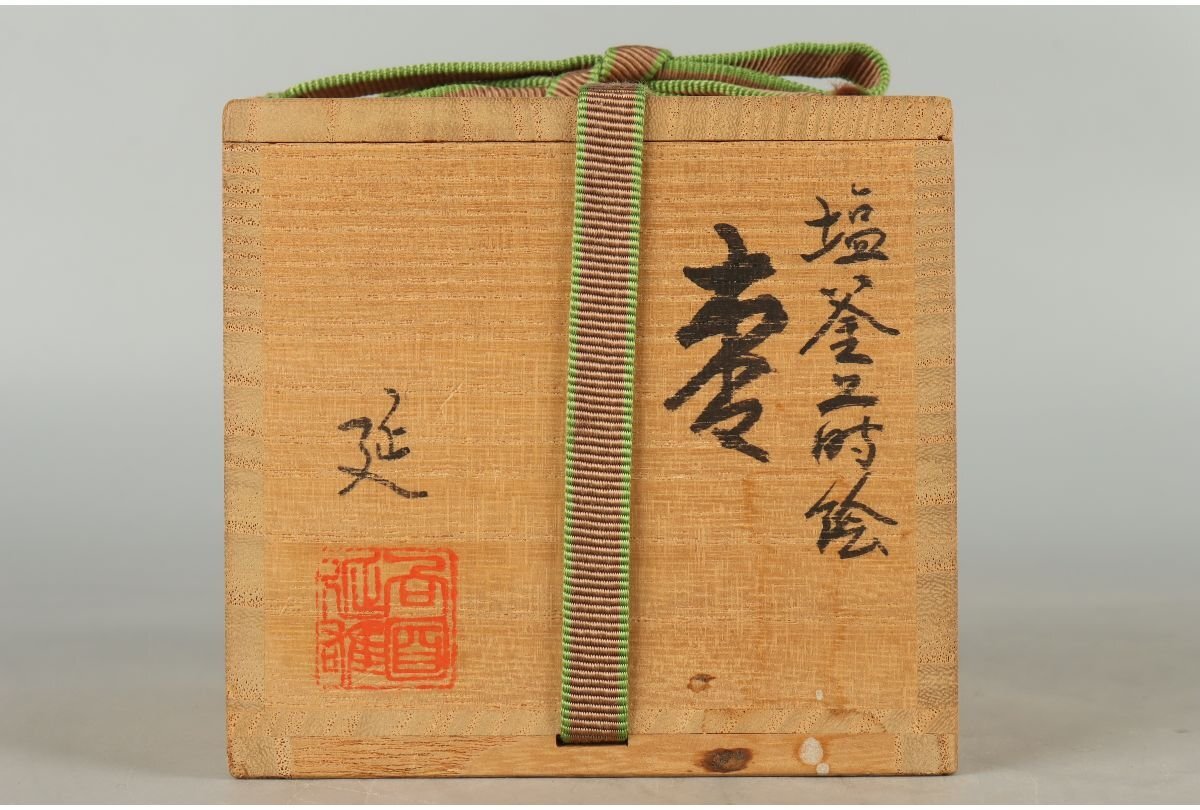 塩釜蒔絵
棗
延